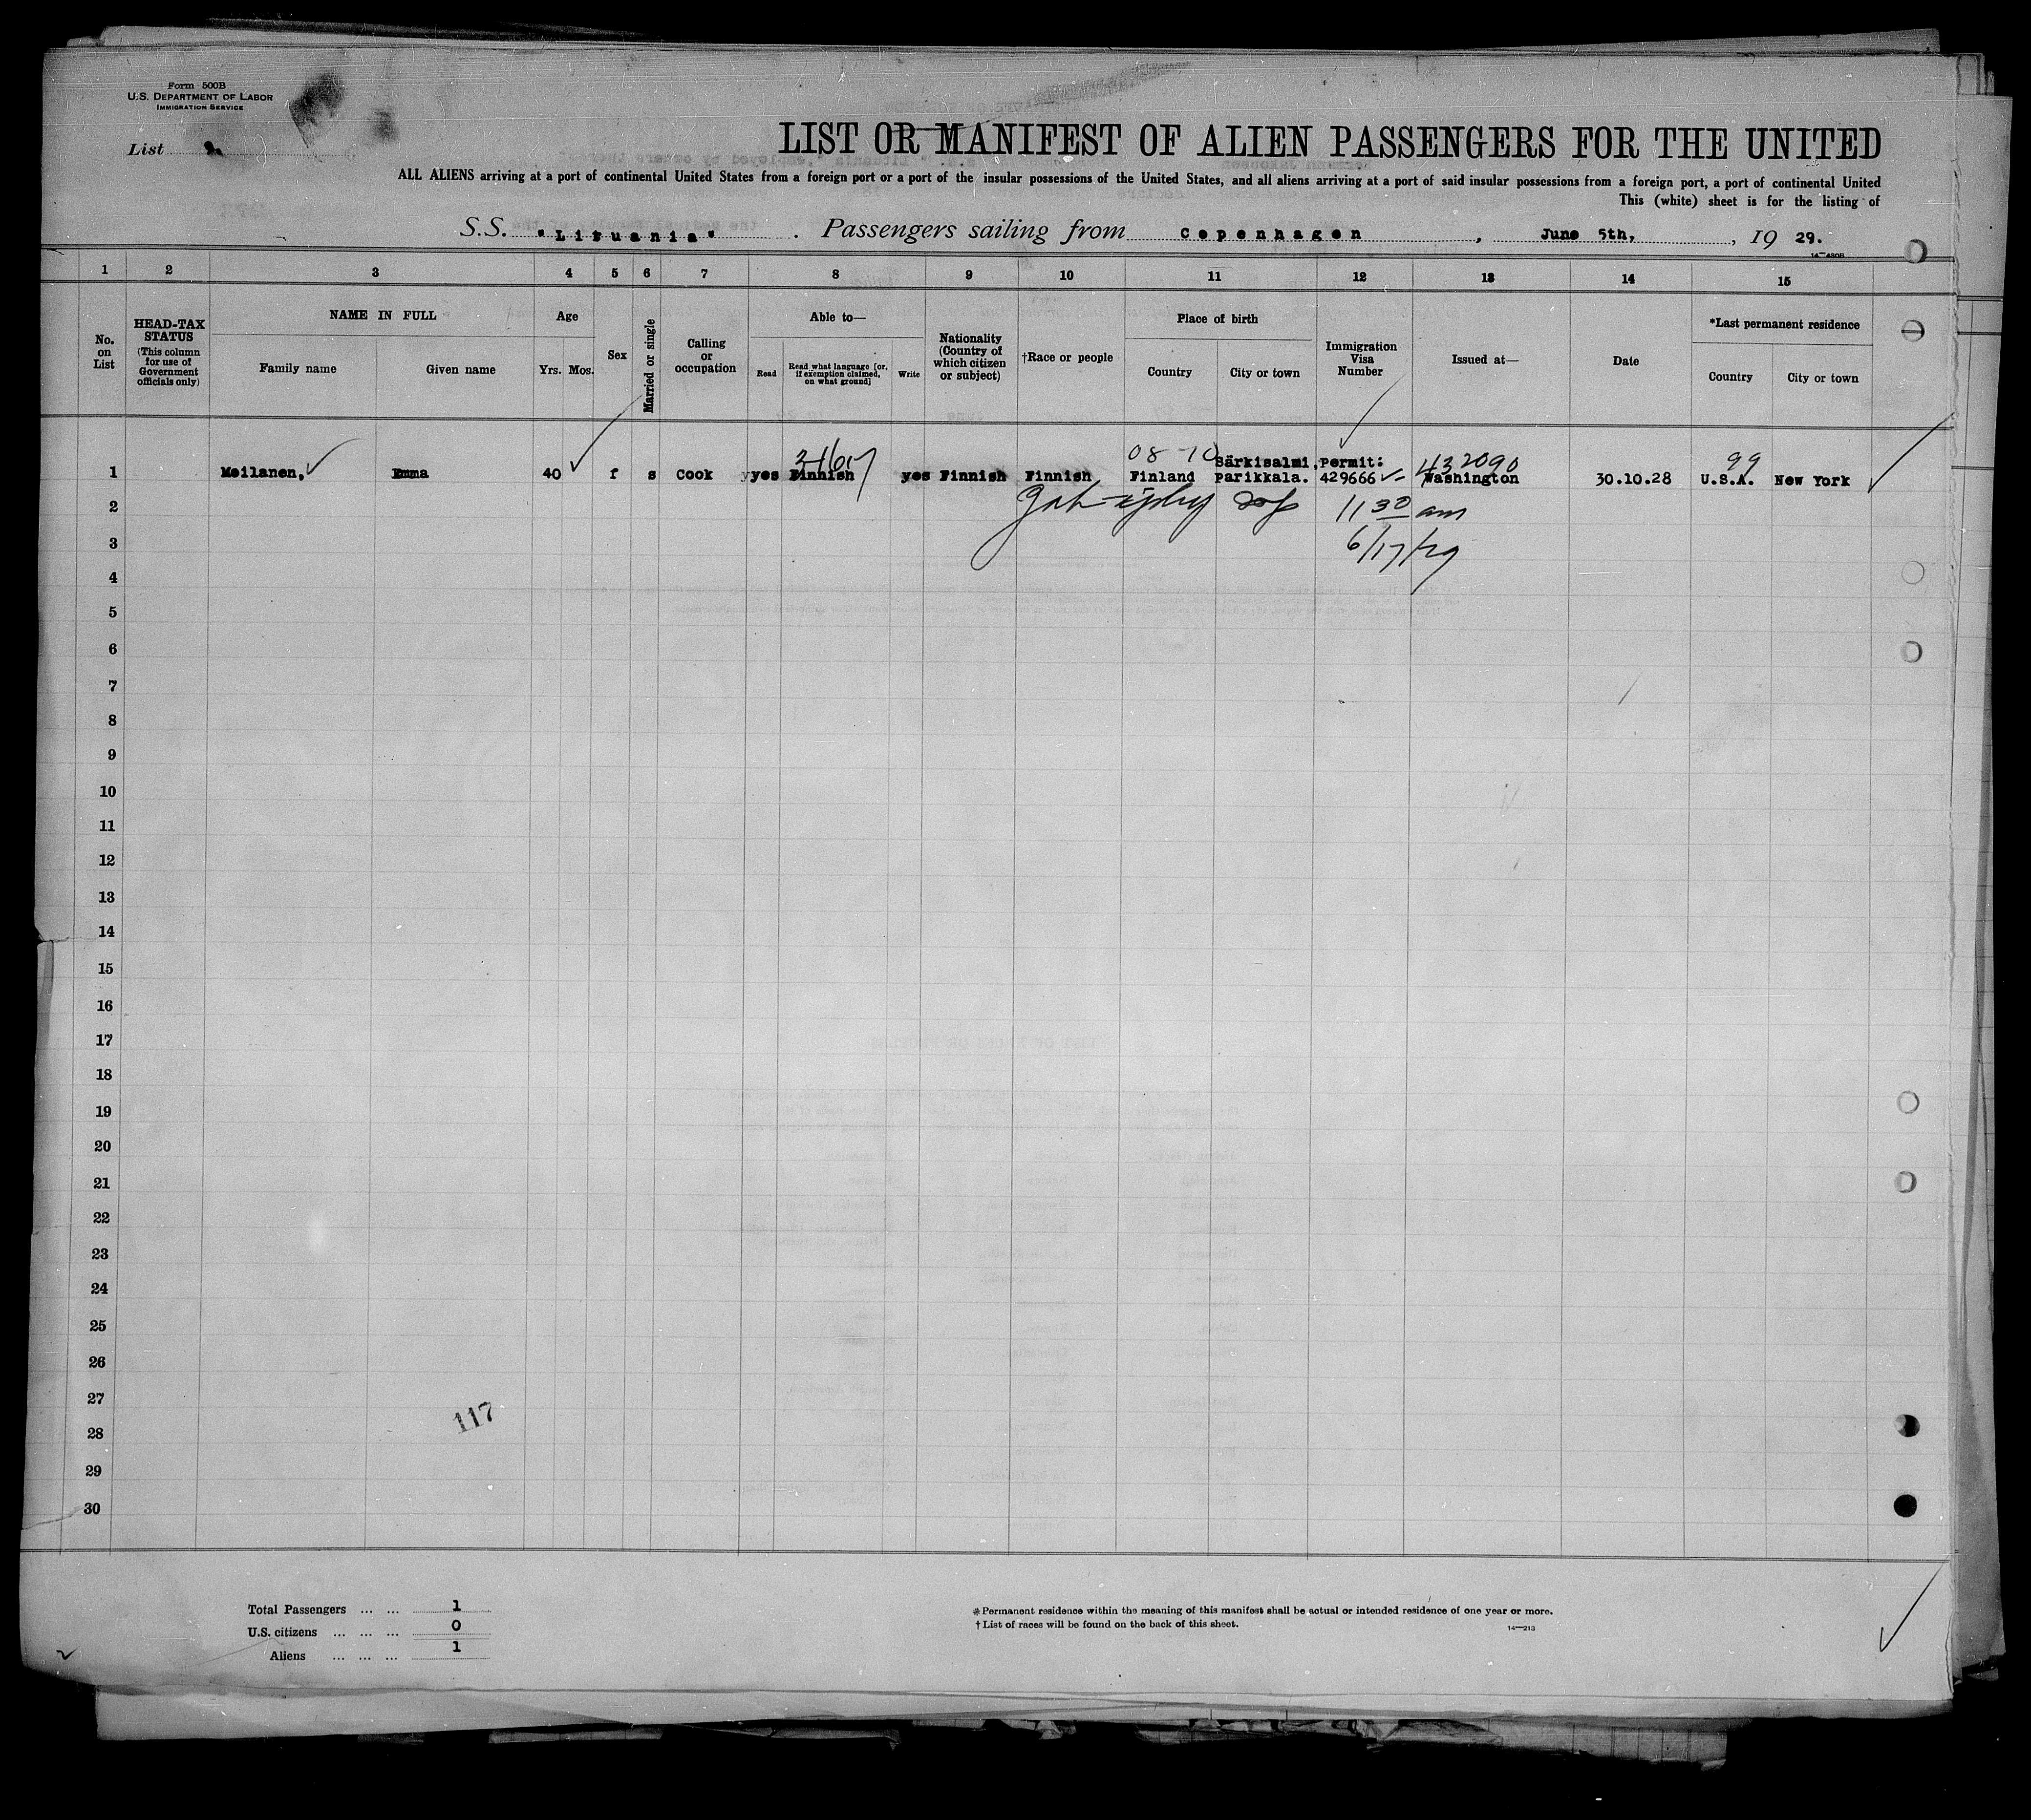 Form 500B
U.S. DEPARTMENT OF LABOR
IMMIGRATION SERVICE
List
LIST OR MANIFEST OF ALIEN PASSENGERS FOR THE UNITED
ALL ALIENS arriving at a port of continental United States from a foreign port or a port of the insular possessions of the United States, and all aliens arriving at a port of said insular possessions from a foreign port, a port of continental United
This (white) sheet is for the listing of
S.S. "Lituania". Passengers sailing from Copenhagen, June 5th, 1929.
1 2 3 4 5 6 7 8 9 10 11 12 13 14 15
No. on List
HEAD-TAX STATUS
(This column for use of Government officials only)
NAME IN FULL
Family name Given name
Age
Yrs. Mos.
Sex
Married or single
Calling or occupation
Able to—
Read
Read what language [or, if exemption claimed, on what ground]
Write
Nationality (Country of which citizen or subject)
†Race or people
Place of birth
Country City or town
Immigration Visa Number
Issued at—
Date
*Last permanent residence
Country City or town
08-10 Särkisalmi, Permit: 432090 99
1 Meilanen, Emma 40 f s Cook yes Finnish yes Finnish Finnish Finland Parikkala. 429666 Washington 30.10.28 U.S.A. New York
2 11 30 am
3 6/17/29
4
5
6
7
8
9
10
11
12
13
14
15
16
17
18
19
20
21
22
23
24
25
26
27
117
28
29
30
Total Passengers ... ... 1
U.S. citizens ... ... ... 0
Aliens ... ... ... 1
*Permanent residence within the meaning of this manifest shall be actual or intended residence of one year or more.
†List of races will be found on the back of this sheet.
14—213